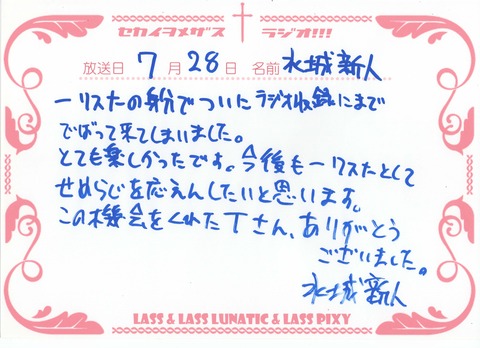 セカイヲメザス ラジオ!!!
放送日 7月28日 名前 水城新人
一リスナの身分でついにラジオ収録にまで
でばって来てしまいました。
とても楽しかったです。今後も一リスナとして
せめらじを応えんしたいと思います。
この機会をくれたTさん、ありがとう
ございました。
水城新人
LASS & LASS LUNATIC & LASS PIXY